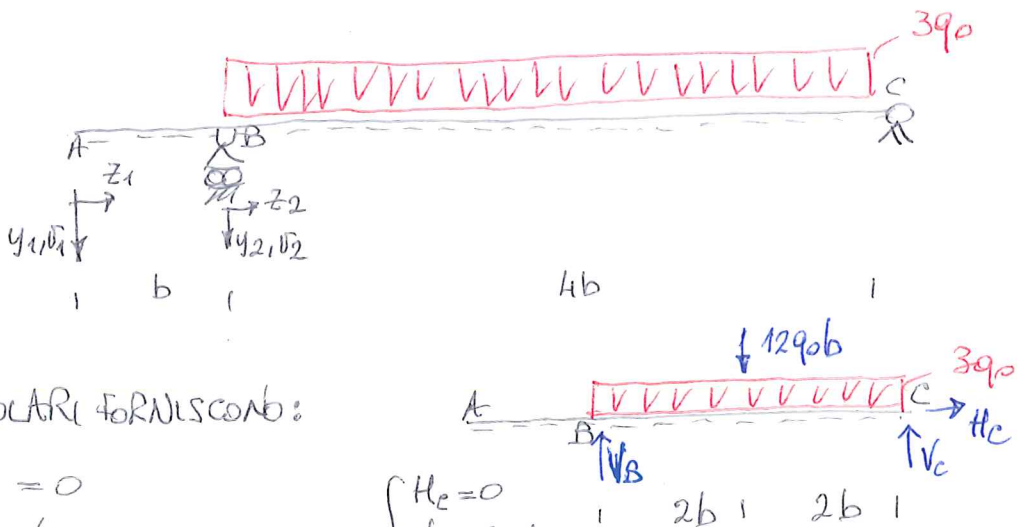 3q₀
C
A
B
z₁
z₂
y₁,v₁
y₂,v₂
b
4b
12q₀b
3q₀
OLARI FORNISCONO:
A
B
C
H_C
V_B
V_C
= 0
H_C = 0
2b
2b